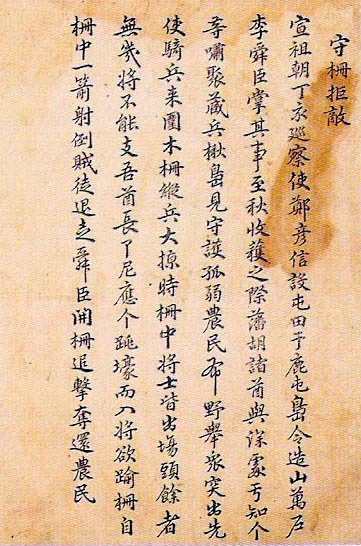 守柵拒敵
宣祖朝丁亥巡察使鄭彦信設屯田于鹿屯島令造山萬戶
李舜臣掌其事至秋收穫之際藩胡諸酋與深處亐知介
等嘯聚藏兵楸島見守護孤弱農民布野舉衆突出先
使騎兵来圍木柵縱兵大掠時柵中將士皆出場頭餘者
無幾將不能支吾酋長了尼應个跳壕而入將欲踰柵自
柵中一箭射倒賊徒退走舜臣開柵追擊奪還農民